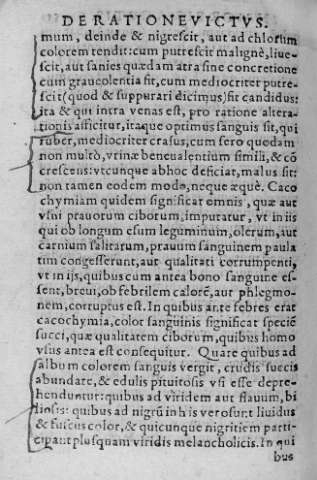 DE RATIONE VICTVS.
mum, deinde & nigrescit, aut ad chlorum
colorem tendit: cum putrescit malignè, liue-
scit, aut sanies quædam atra sine concretione
cum graueolentia fit, cum mediocriter putre-
scit (quod & suppurari dicimus) fit candidus:
ita & qui intra venas est, pro ratione altera-
tionis afficitur, itaque optimus sanguis fit, qui
ruber, mediocriter crasus, cum sero quodam
non multò, vrinæ beneualentium simili, & cõ
crescens: vtcunque ab hoc deficiat, malus sit:
non tamen eodem modo, neque æquè. Caco
chymiam quidem significat omnis, quæ aut
vsui prauorum ciborum, imputatur, vt in iis
qui ob longum esum leguminum, olerum, aut
carnium salitarum, prauum sanguinem paula
tim congesserunt, aut qualitati corrumpenti,
vt in ijs, quibus cum antea bono sanguine es-
sent, breui, ob febrilem calorẽ, aut phlegmo-
nem, corruptus est. In quibus ante febres erat
cacochymia, color sanguinis significat speciẽ
succi, quæ qualitatem ciborum, quibus homo
vsus antea est consequitur. Quare quibus ad
album colorem sanguis vergit, crudis succis
abundare, & edulis pituitosis vsi esse depre-
henduntur: quibus ad viridem aut flauum, bi
liosis: quibus ad nigrũ in his vero sunt liuidus
& fuscus color, & quicunque nigritiem parti-
cipant plusquam viridis melancholicis. In qui
bus